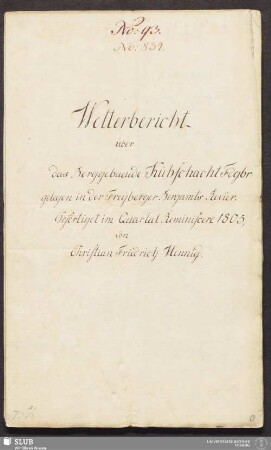 No: 93.
No: 832.
Wetterbericht
über
das Berggebaeude Kühschacht Fdgbr
gelegen in der Freyberger Bergamts Revier.
Gefertiget im Quartal Reminiscere 1805,
von
Christian Friedrich Hennig.
SLUB